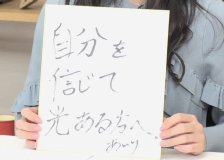 自分を
信じて
光ある方へ
あいり